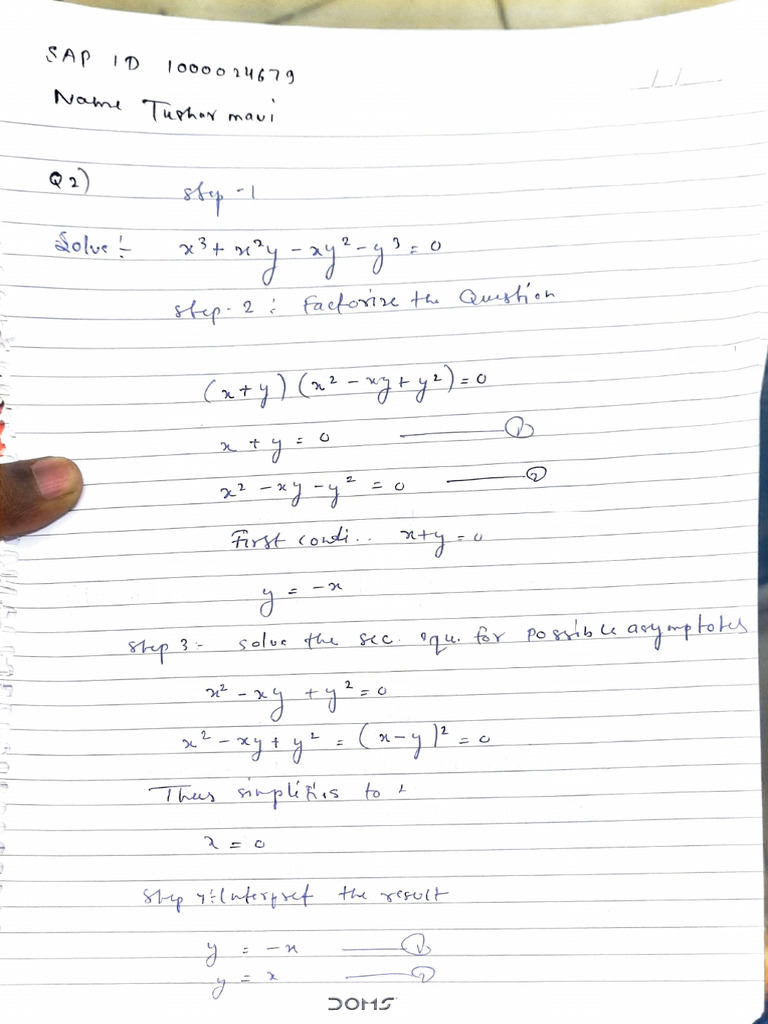 SAP ID 1000024679
Name Tushar mavi
Q2) step -1
Solve :- x³ + x²y - xy² - y³ = 0
step-2 : Factorize the Question
(x+y) (x² - xy + y²) = 0
x + y = 0 ——— ①
x² - xy - y² = 0 ——— ②
First condi.. x+y = 0
y = -x
step 3 :- solve the sec. equ. for possible asymptotes
x² - xy + y² = 0
x² - xy + y² = (x-y)² = 0
Thus simplifies to
x = 0
step 4 : Interpret the result
y = -x ——— ①
y = x ——— ②
DOMS